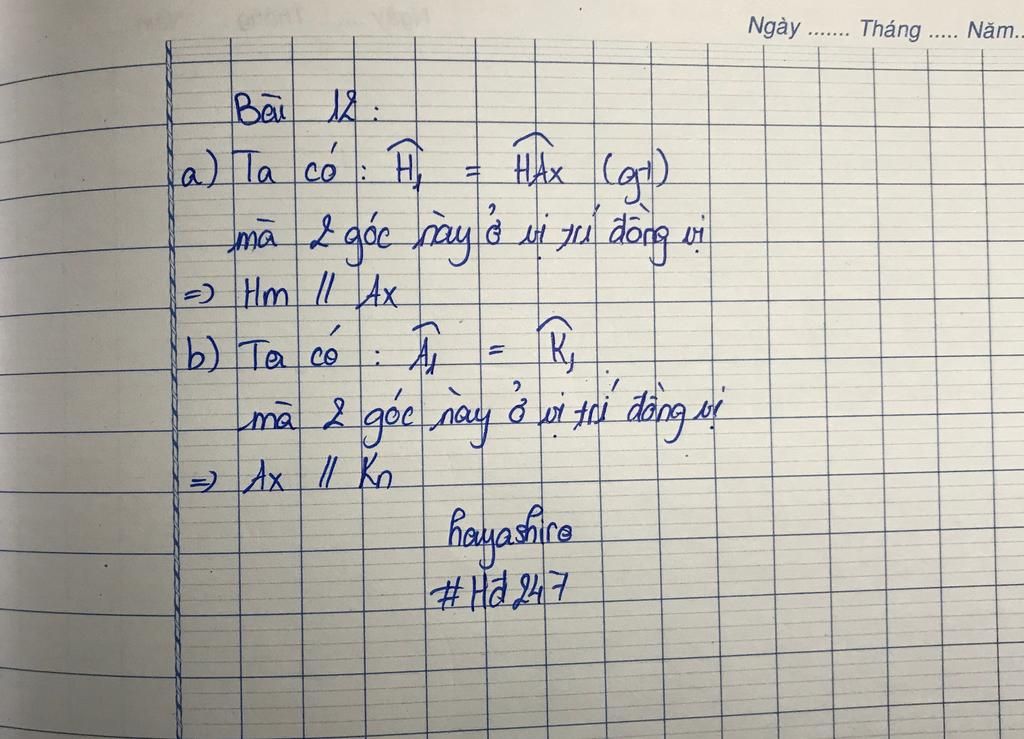 Ngày ....... Tháng ..... Năm..
Bài 12 :
a) Ta có : Ĥ₁ = HÂx (gt)
mà 2 góc này ở vị trí đồng vị
=> Hm // Ax
b) Ta có : Â₁ = K̂₁
mà 2 góc này ở vị trí đồng vị
=> Ax // Kn
hayashiro
#Hđ247